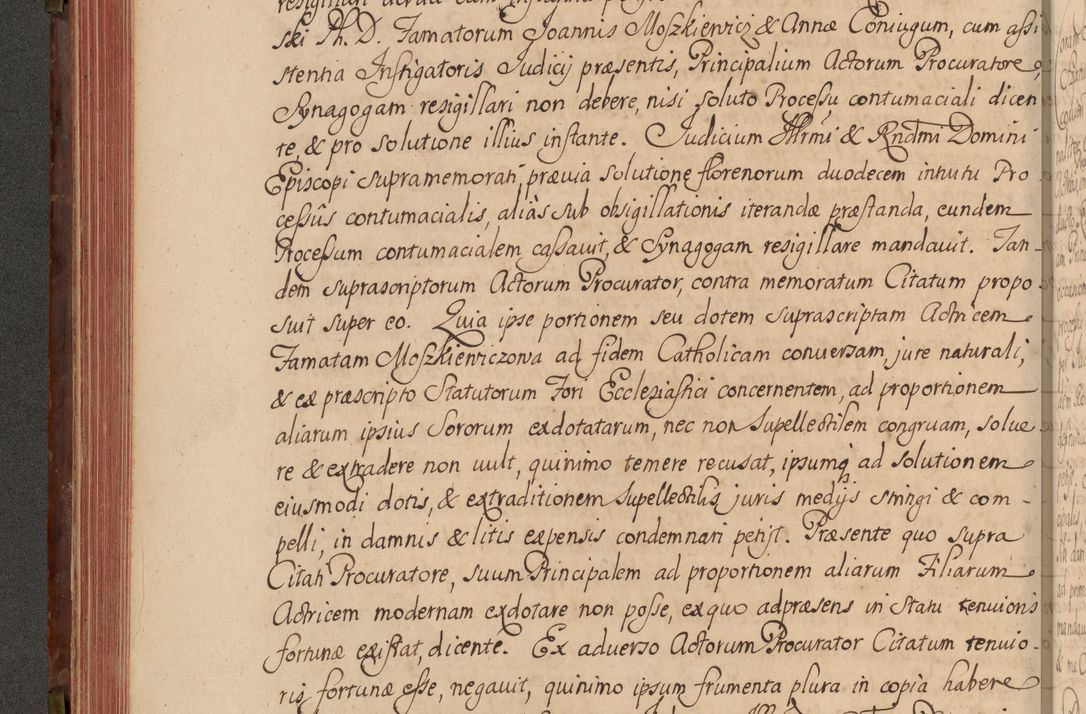 ski Ph. D. Famatorum Joannis Moszkiewicz & Annæ Coniugum, cum assi
stentia Instigatoris Judicij præsentis, Principalium Actorum Procuratore,
Synagogam resigillari non debere, nisi soluto Processu contumaciali dicen
te, & pro solutione illius instante. Judicium Illrmi & Rndmi Domini
Episcopi supramemorati, prævia solutione florenorum duodecem intuitu Pro
cessûs contumacialis, aliàs sub obsigillationis iterandæ præstanda, eundem
Processum contumacialem cassavit, & Synagogam resigillare mandavit. Tan-
dem suprascriptorum Actorum Procurator, contra memoratum Citatum propo
suit super eo. Quia ipse portionem seu dotem suprascriptam Actricem
Famatam Moszkiewiczowa ad fidem Catholicam conversam, jure naturali,
& ex præscripto Statutorum Fori Ecclesiastici concernentem, ad proportionem
aliarum ipsius Sororum exdotatarum, nec non supellectilem congruam, solve
re & extradere non vult, quinimo temere recusat, ipsumq ad solutionem
eiusmodi dotis, & extraditionem supellectilis juris medijs stringi & com-
pelli, in damnis & litis expensis condemnari petijt. Præsente quo supra
Citati Procuratore, suum Principalem ad proportionem aliarum Filiarum
Actricem modernam exdotare non posse, ex quo ad præsens in statu tenuioris
fortunæ existat, dicente. Ex adverso Actorum Procurator Citatum tenuio-
ris fortunæ esse, negavit, quinimo ipsum frumenta plura in copia habere